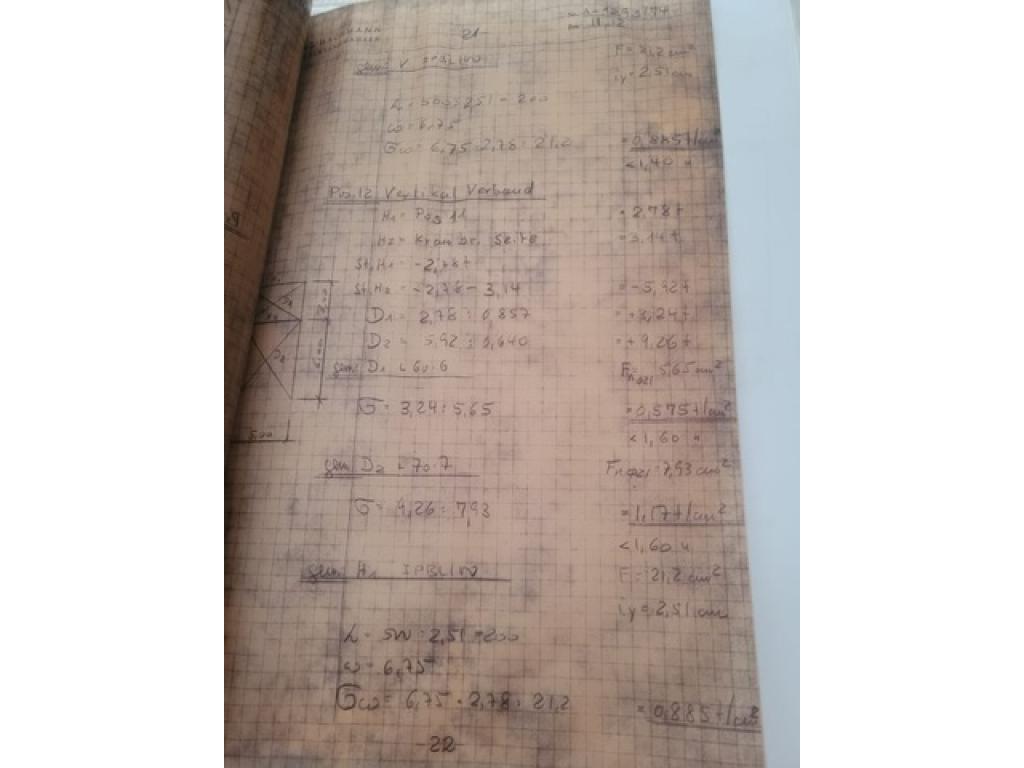 21
gew. V IPBL100 F = 21,2 cm²
iy = 2,51 cm
λ = 500 : 2,51 = 200
ω = 6,75
σω = 6,75 · 2,78 : 21,2 = 0,885 t/cm²
< 1,40 "
Pos. 12 Vertikal Verband
H₁ = Pos 11 = 2,78 t
H₂ = Kran = 3,14 t
St. H₁ = -2,78 t
St. H₂ = -2,78 - 3,14 = -5,92 t
D₁ = 2,78 : 0,857 = +3,24 t
D₂ = 5,92 : 0,640 = +9,26 t
gew. D₁ L 60·6 5,65 cm²
σ = 3,24 : 5,65 = 0,575 t/cm²
< 1,60 "
gew. D₂ L 70·7 7,93 cm²
σ = 9,26 : 7,93 = 1,17 t/cm²
< 1,60 "
gew. H₁ IPBL100 F = 21,2 cm²
iy = 2,51 cm
λ = 500 : 2,51 = 200
ω = 6,75
σω = 6,75 · 2,78 : 21,2 = 0,885 t/cm²
-22-
D₂
500